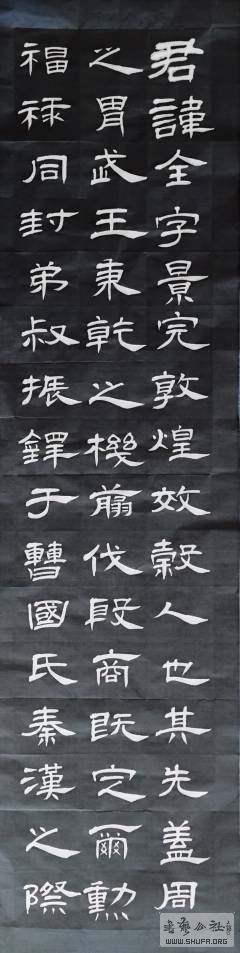 君諱全字景完敦煌效穀人也其先蓋周
之胄武王秉乾之機翦伐殷商既定爾勳
福祿同封弟叔振鐸于曹國氏秦漢之際
WWW.SHUFA.ORG